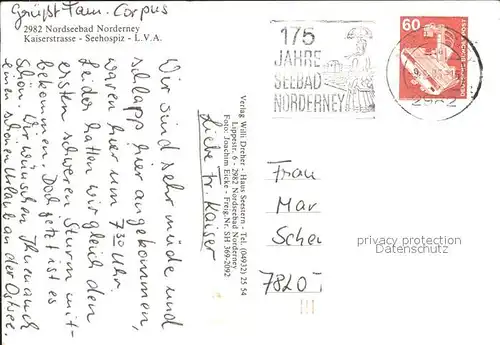 Grüßt Fam. Corpus
2982 Nordseebad Norderney
Kaiserstrasse - Seehospiz - L.V.A.
Liebe Fr. Kaiser
Wir sind sehr müde und
schlapp hier angekommen,
waren hier um 7³⁰ Uhr.
Leider hatten wir gleich den
ersten schweren Sturm mit-
bekommen. Doch jetzt ist es
schön. Wir wünschen Ihnen auch
einen schönen Urlaub an der Ostsee.
Verlag Willi Dreher - Haus Seestern - Tel. (04932) 25 54
Lippestr. 6 - 2982 Nordseebad Norderney
Foto: Joachim Eicke - Freig.Nr. SH 369-2092
175
JAHRE
SEEBAD
NORDERNEY
60
2982
Frau
Mar
Schei
7820
privacy protection
Datenschutz